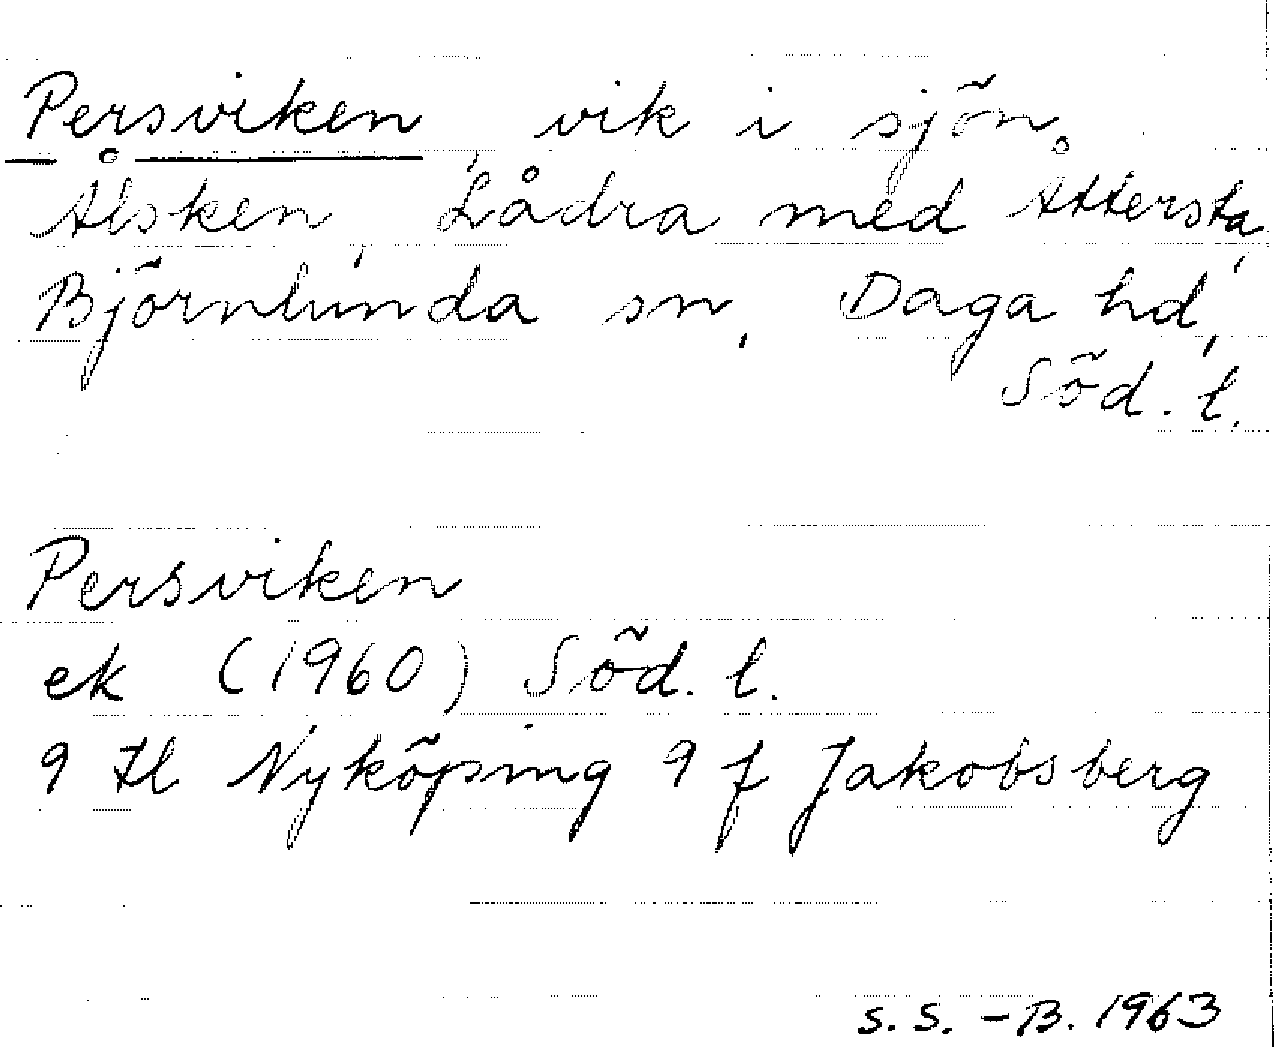 Persviken, vik i sjön
Ålsken, Lådra med Åttersta,
Björnlunda sn, Daga hd,
Söd. l.
Persviken
ek (1960) Söd. l.
9 H1 Nyköping 9 f Jakobsberg
S.S.-B. 1963